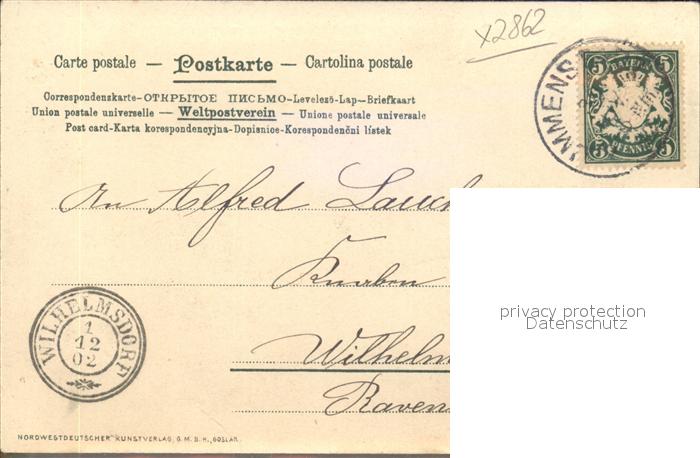 x2862
Carte postale — Postkarte — Cartolina postale
Correspondenzkarte-ОТКРЫТОЕ ПИСЬМО-Levelező-Lap-Briefkaart
Union postale universelle — Weltpostverein — Unione postale universale
Post card-Karta korespondencyjna-Dopisnice-Korespondenční lístek
BAYERN
5 5
PFENNIG
5 5
IMMENS
An Alfred Lauch
Knaben
Wilhelm
Raven
WILHELMSDORF
1
12
02
privacy protection
Datenschutz
NORDWESTDEUTSCHER KUNSTVERLAG, G.M.B.H., GOSLAR.